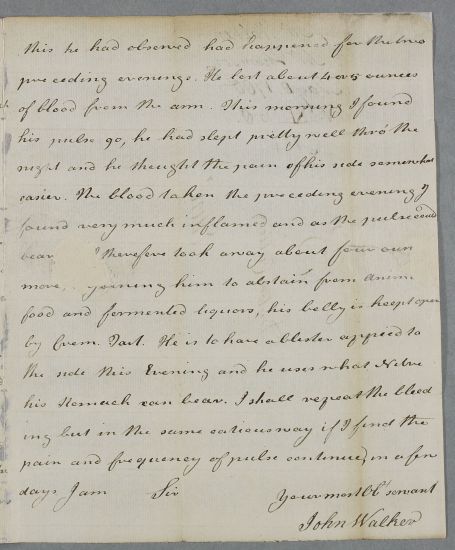 this he had observed had happened for the two
preceding evenings. He lost about 4 or 5 ounces
of blood from the arm. This morning I found
his pulse 90, he had slept pretty well thro' the
night and he thought the pain of his side somewhat
easier. The blood taken the preceding evening I
found very much inflamed and as the pulse could
bear I therefore took away about four oun
more, joining him to abstain from Anim
food and formented liquors, his belly is keept open
by Crem. Tart. He is to have a blister applied to
the side this Evening and he uses what Nitre
his stomach can bear. I shall repeat the blood
ing but in the same catious way if I find the
pain and frequency of pulse continue, in a few
days I am Sir
Your most Ob' servant
John Walker